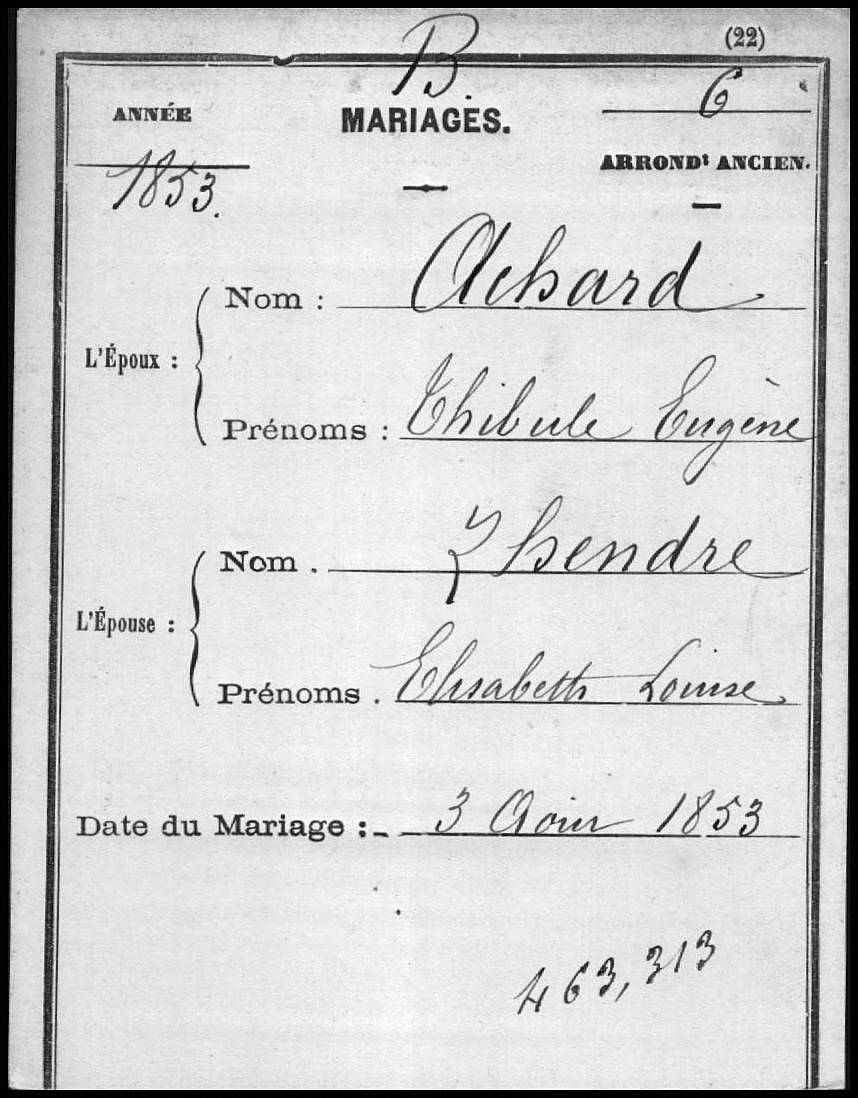 (22)
B.
6
ANNÉE
MARIAGES.
ARRONDt ANCIEN.
1853.
L'Époux :
Nom : Achard
Prénoms : Thibule Eugène
L'Épouse :
Nom .
Prénoms . Elisabeth Louise
Date du Mariage : 3 Août 1853
463,313